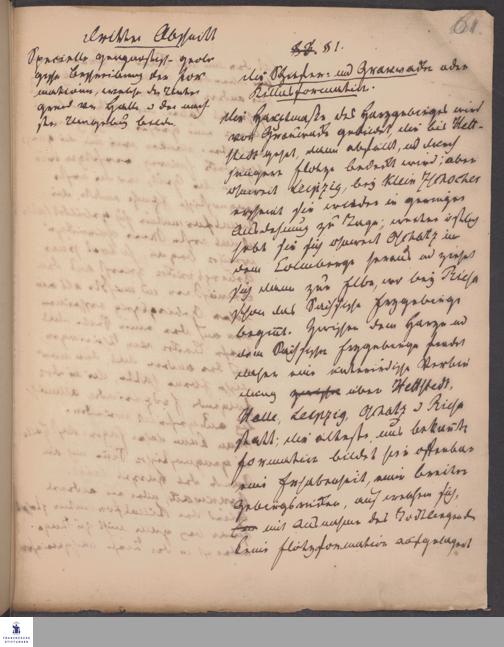 61.
Dritter Abschnitt
Specielle geognostisch-geolo-
gische Beschreibung der For-
mationen, welche den Unter-
grund von Halle u der näch-
sten Umgebung bilden.
§ 1.
die Schiefer- und Grauwacke oder
Killasformation.
die Hauptmasse des Harzgebirges wird
von Grauwacke gebildet, die bis Hett-
stedt geht, dann abfällt, und durch
jüngere Flötze bedeckt wird; aber
ohnweit Leipzig, bey Klein Zschocher
erscheint sie wieder in geringer
Ausdehnung zu Tage; weiter östlich
hebt sie sich ohnweit Oschatz in
dem Colmberge heraus und zieht
sich dann zur Elbe, wo bey Riesa
schon das Sächsische Erzgebirge
beginnt. Zwischen dem Harze und
dem Sächsischen Erzgebirge findet
daher eine unterirdische Verbin
dung über Hettstedt,
Halle, Leipzig, Oschatz u Riesa
statt; die älteste, uns bekannte
Formation bildet hier offenbar
eine Erhabenheit, einen breiten
Gebirgsrücken, auf welchem sich,
mit Ausnahme des Todtliegenden
keine Flötzformation aufgelagert
FRANCKESCHE
STIFTUNGEN